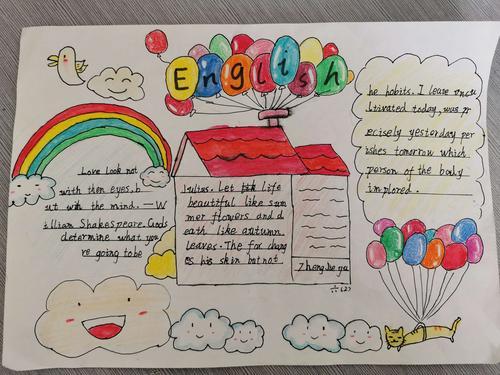 English
Love look not
with then eyes, b
ut with the mind. — W
illian Shakespeare. Gods
determine what you
re going tobe
Julius. Let life
beautiful like sum
mer flowers and d
eath like autumn
leaves. The fox chang
es his skin but not
Zheng Jie yu
六(2)
he habits. I leave uncu
ltivated today, was pr
ecisely yesterday per
ishes tomorrow which
person of the body
implored.